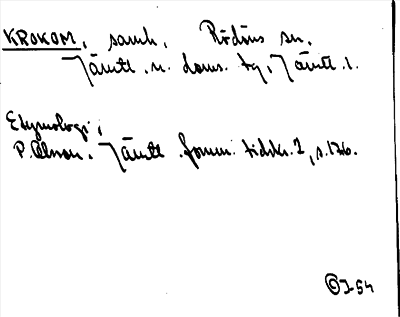 KROKOM, samh. Rödöns sn.
Jämtl. n. doms. tg, Jämtl. l.
Etymologi:
P. Olsson. Jämtl. fornm. tidskr. 2, s. 176.
J-54